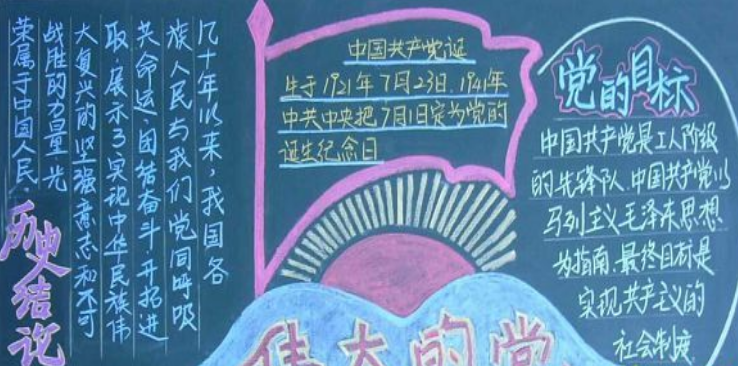 几十年以来,我国各
族人民与我们党同呼吸
共命运、团结奋斗、开拓进
取、展示了实现中华民族伟
大复兴的坚强意志和不可
战胜的力量光
荣属于中国人民.
历史结论
中国共产党诞
生于1921年7月23日.1941年
中共中央把7月1日定为党的
诞生纪念日
伟大的党
党的目标
中国共产党是工人阶级
的先锋队.中国共产党以
马列主义毛泽东思想
为指南.最终目标是
实现共产主义的
社会制度